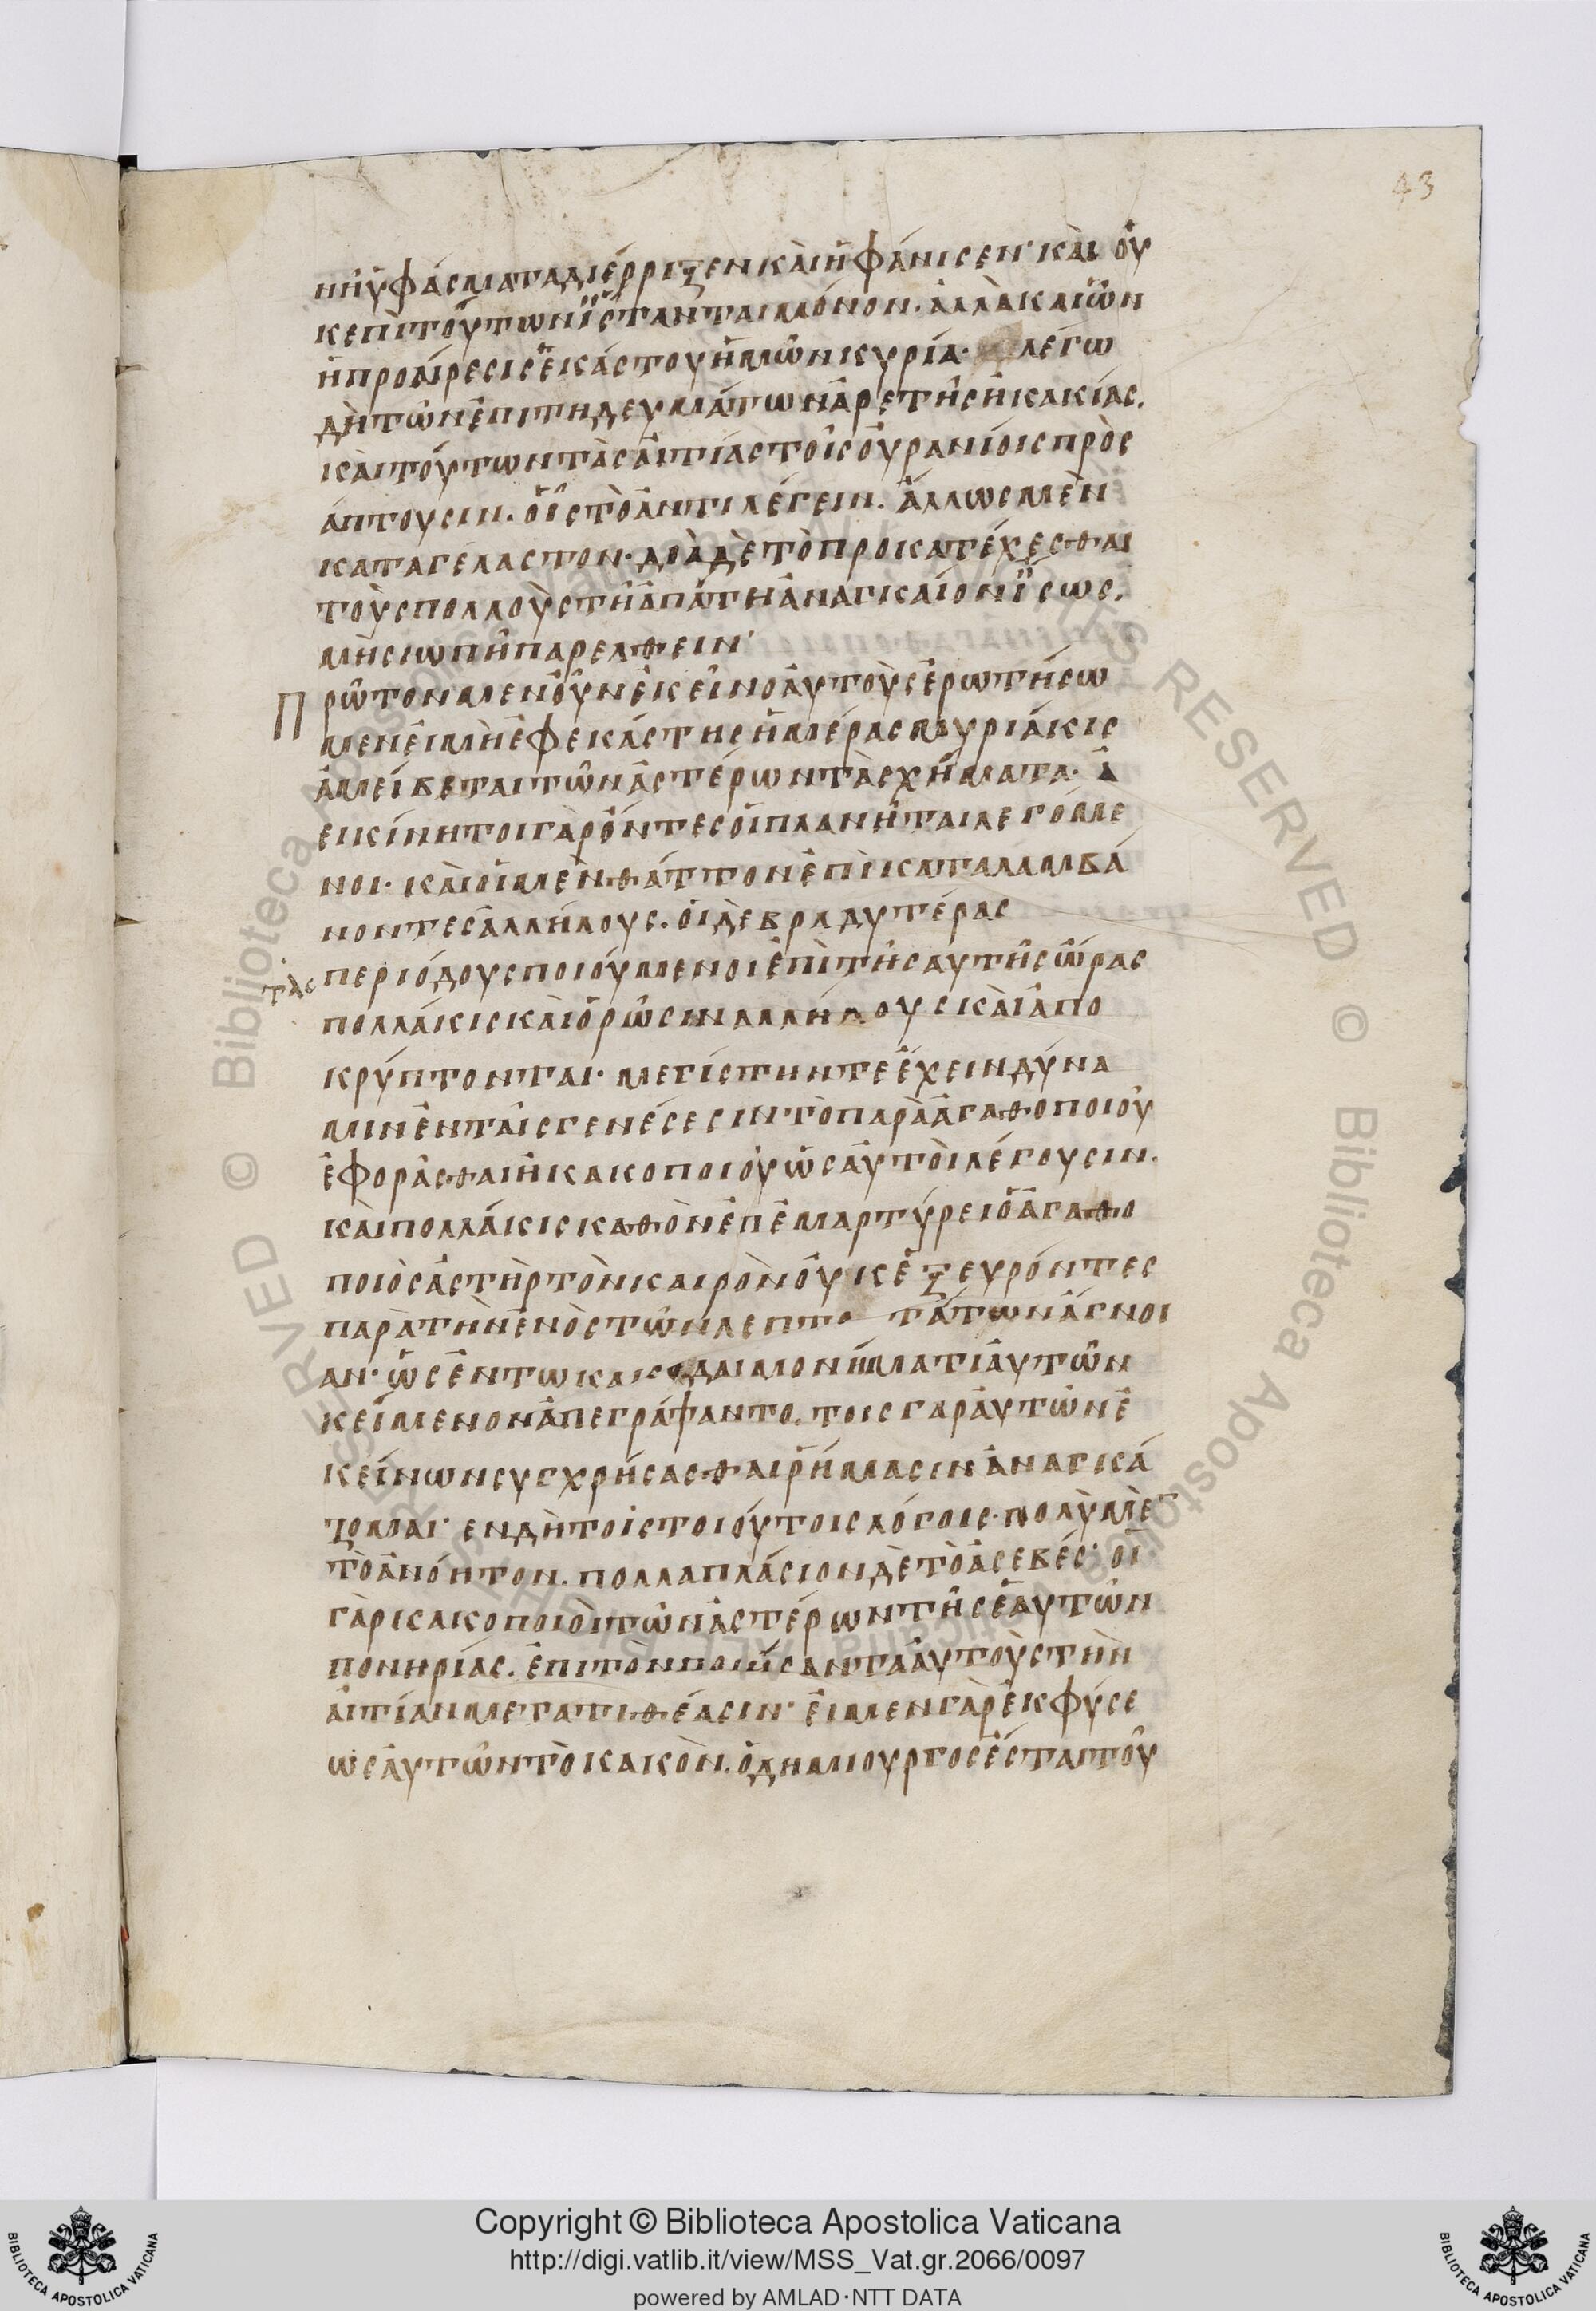 43
νηὑφάσματαδιέρριξενκαὶἠφάνισεν· καὶ οὐ
κεπὶτούτωνἵστανταιμόνον. ἀλλὰκαὶὧν
ἡπροαίρεσιςἑκάστουἡμῶνκυρία· λέγω
δὴτῶνἐπιτηδευμάτωνἀρετῆςἢκακίας.
καὶτούτωντὰςαἰτίαςτοῖςοὐρανίοιςπροσ
άπτουσιν. οἷςτὸἀντιλέγειν. ἄλλωςμὲν
καταγέλαστον· διὰδὲτὸπροκατέχεσθαι
τοὺςπολλοὺςτῆἀπάτηἀναγκαῖονἴσως.
μὴσιωπῆπαρελθεῖν·
Πρῶτονμενοὖνἐκεῖνοαὐτοὺςἐρωτήσω
μενεἰμὴἐφεκάστηςἡμέραςμυριάκις
ἀμείβεταιτῶνἀστέρωντὰσχήματα· ἀ
εικίνητοιγὰρὄντεςοἱπλανῆταιλεγόμε
νοι· καὶοἱμὲνθάττονἐπικαταλαμβά
νοντεςἀλλήλους. οἱδὲβραδυτέρας
τὰς περιόδουςποιούμενοιἐπὶτῆςαὐτῆςὥρας
πολλάκιςκαὶὁρῶσινἀλλήλουςκαὶἀπο
κρύπτονται· μεγίστηντεἔχεινδύνα
μινἐνταῖςγενέσεσιντὸπαρὰἀγαθοποιοῦ
ἐφορᾶσθαιἢκακοποιοῦὡςαὐτοὶλέγουσιν.
καὶπολλάκιςκαθὸνἐπἐμαρτύρειὁἀγαθο
ποιὸςἀστὴρτὸνκαιρὸνοὐκἐξευρόντες
παρὰτὴνἑνὸςτῶνλεπτοτάτωνἄγνοι
αν· ὡςἐντωκακοδαιμονήματιαὐτῶν
κείμενονἀπεγράψαντο. τοιςγαραὐτῶνἐ
κείνωνσυγχρήσασθαιρήμασινἀναγκά
ζομαι· ενδὴτοῖςτοιούτοιςλόγοις· πολὺμὲν
τὸἀνόητον. πολλαπλάσιονδὲτὸἀσεβές· οἱ
γὰρκακοποιοὶτῶνἀστέρωντῆςἑαυτῶν
πονηρίας. ἐπιτὸνποιήσανταἀυτοὺςτὴν
αἰτίανμετατιθέασιν· εἰμενγὰρἐκφύσε
ωςαὐτῶντὸκακὸν. ὁδημιουργοςἔσταιτοῦ
Copyright © Biblioteca Apostolica Vaticana
http://digi.vatlib.it/view/MSS_Vat.gr.2066/0097
powered by AMLAD·NTT DATA